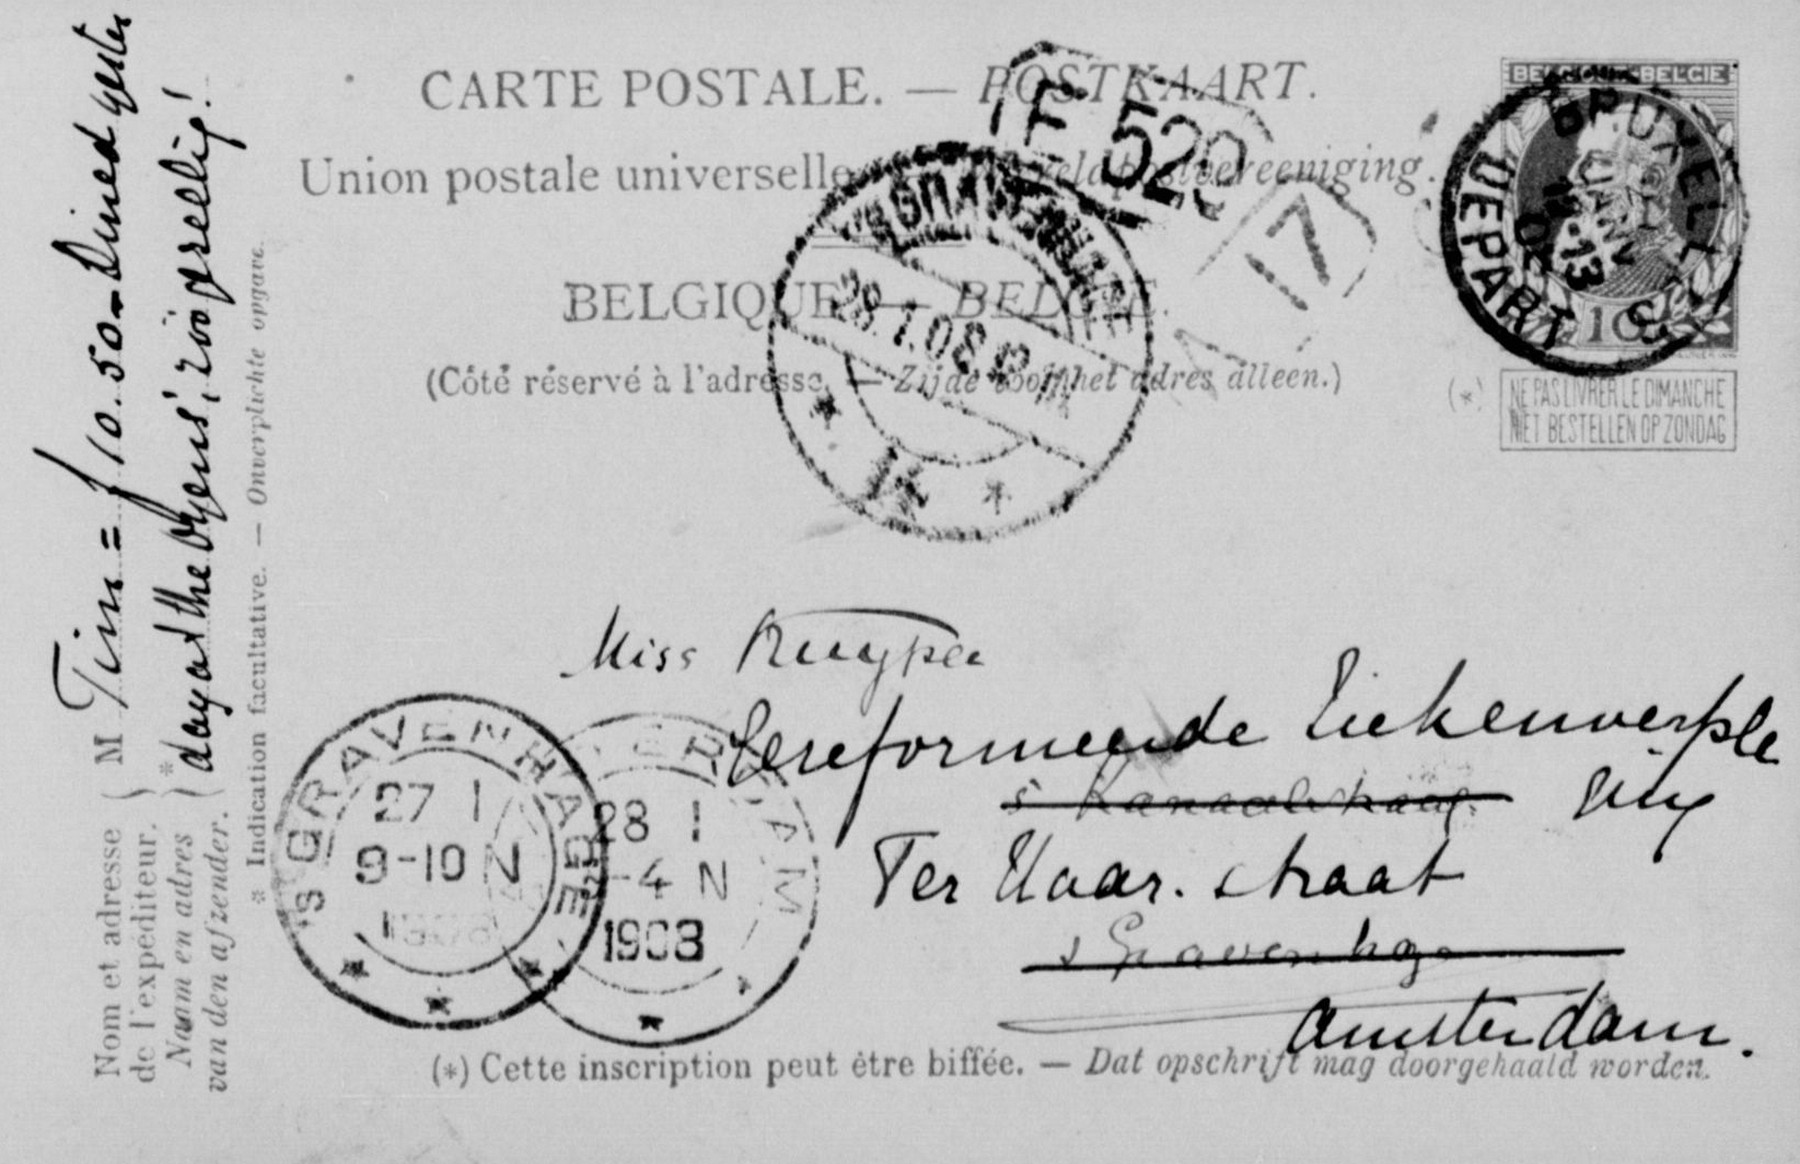 CARTE POSTALE. — POSTKAART.
Union postale universelle. — Wereldpostvereeniging.
BELGIQUE — BELGIE.
(Côté réservé à l'adresse. — Zijde voor het adres alleen.)
BELGIQUE BELGIE
10
(*) NE PAS LIVRER LE DIMANCHE
NIET BESTELLEN OP ZONDAG
BRUXELLES
JANV
DEPART
E 520
'S GRAVENHAGE
28.1.08
Miss Kuyper
Gereformeerde Ziekenverple
ging
s' Kanaalstraat
Ter Haar. straat
s Gravenhage
Amsterdam.
'S GRAVENHAGE
27 1
9-10 N
1908
AMSTERDAM
28 1
-4 N
1908
(*) Cette inscription peut être biffée. — Dat opschrift mag doorgehaald worden.
M Tim = f 10.50 — Dined yester
day at the 's, zóó gezellig!
Nom et adresse
de l'expéditeur.
Naam en adres
van den afzender.
* Indication facultative. — Onverplichte opgave.